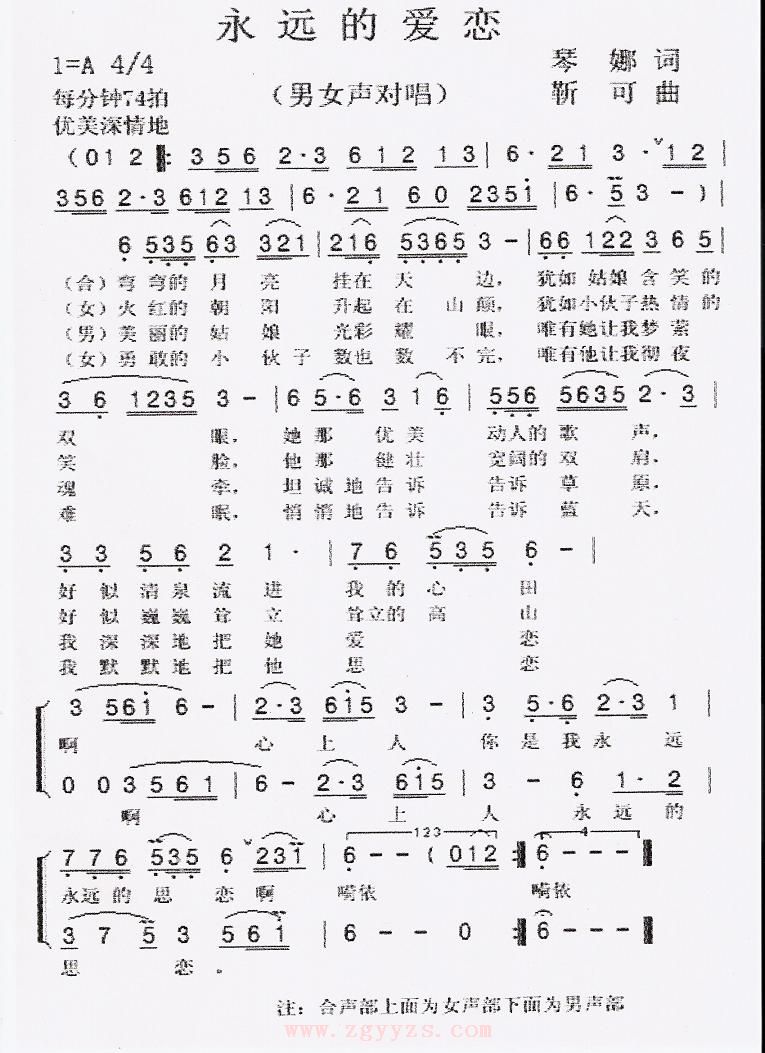 永远的爱恋
1=A 4/4
琴 娜 词
每分钟74拍
（男女声对唱）
靳 可 曲
优美深情地
(012 ‖: 356 2·3 612 13 | 6· 21 3· ∨12 |
356 2·3 612 13 | 6· 21 60 2351 | 6· 5 3 - ) |
6 535 63 321 | 216 5365 3 - | 66 122 3 6 5 |
（合）弯弯的 月 亮 挂在 天 边，犹如 姑娘 含 笑的
（女）火红的 朝 阳 升起 在 山巅，犹如小伙子热 情的
（男）美丽的 姑 娘 光彩 耀 眼，唯有她让我梦 萦
（女）勇敢的 小 伙 子 数也 数 不 完，唯有他让我彻 夜
3 6 1235 3 - | 6 5·6 3 1 6 | 556 5635 2·3 |
双 眼，她 那 优 美 动人的 歌 声，
笑 脸，他 那 健 壮 宽阔的 双 肩，
魂 牵，坦 诚地 告 诉 告诉 草 原，
难 眠，悄 悄地 告 诉 告诉 蓝 天，
3 3 5 6 2 1· | 7 6 535 6 - |
好 似 清 泉 流 进 我 的 心 田
好 似 巍 巍 耸 立 耸立的 高 山
我 深 深 地 把 她 爱 恋
我 默 默 地 把 他 思 恋
3 561 6 - | 2·3 615 3 - | 3 5·6 2·3 1 |
啊 心 上 人 你 是 我 永 远
0 0 3 561 | 6 - 2·3 615 | 3 - 6 1·2 |
啊 心 上 人 永 远 的
776 535 6 ∨231 | 123 6 - - (012 :‖ 4 6 - - - ‖
永远的 思 恋 啊 嗬依 嗬依
3 7 5 3 561 | 6 - - 0 :‖ 6 - - - ‖
思 恋 。
注：合声部上面为女声部下面为男声部
www.zgyyzs.com